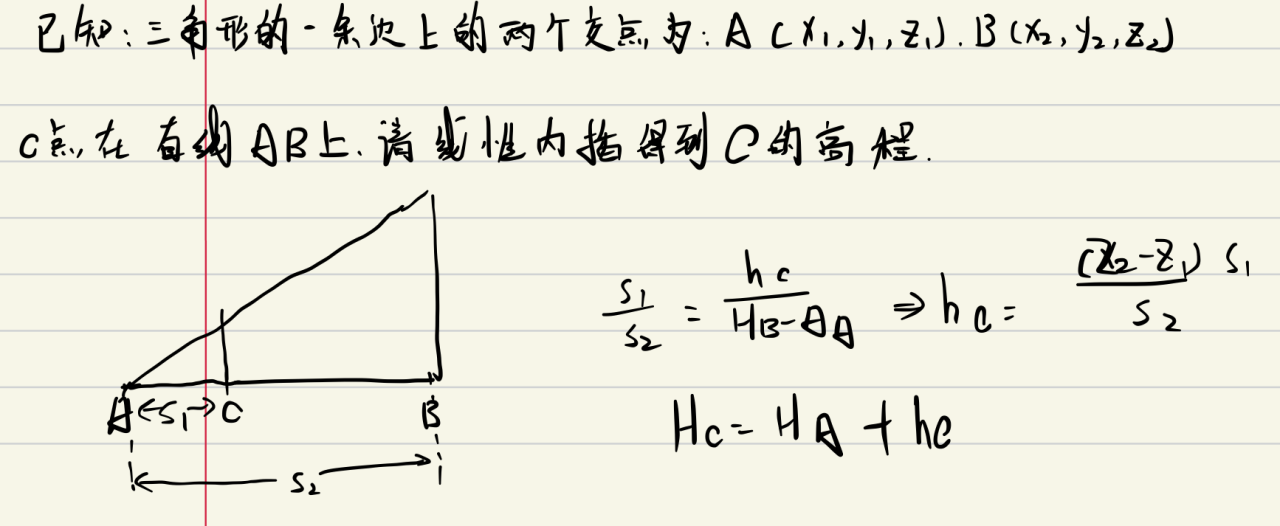 已知:三角形的一条边上的两个交点为:A(x₁,y₁,z₁).B(x₂,y₂,z₂)
C点在直线AB上.请线性内插得到C的高程.
S₁/S₂ = hc/(HB-AA) ⇒ hc = (Z₂-Z₁)S₁/S₂
Hc = HA + hc
A ←S₁→ C B
S₂